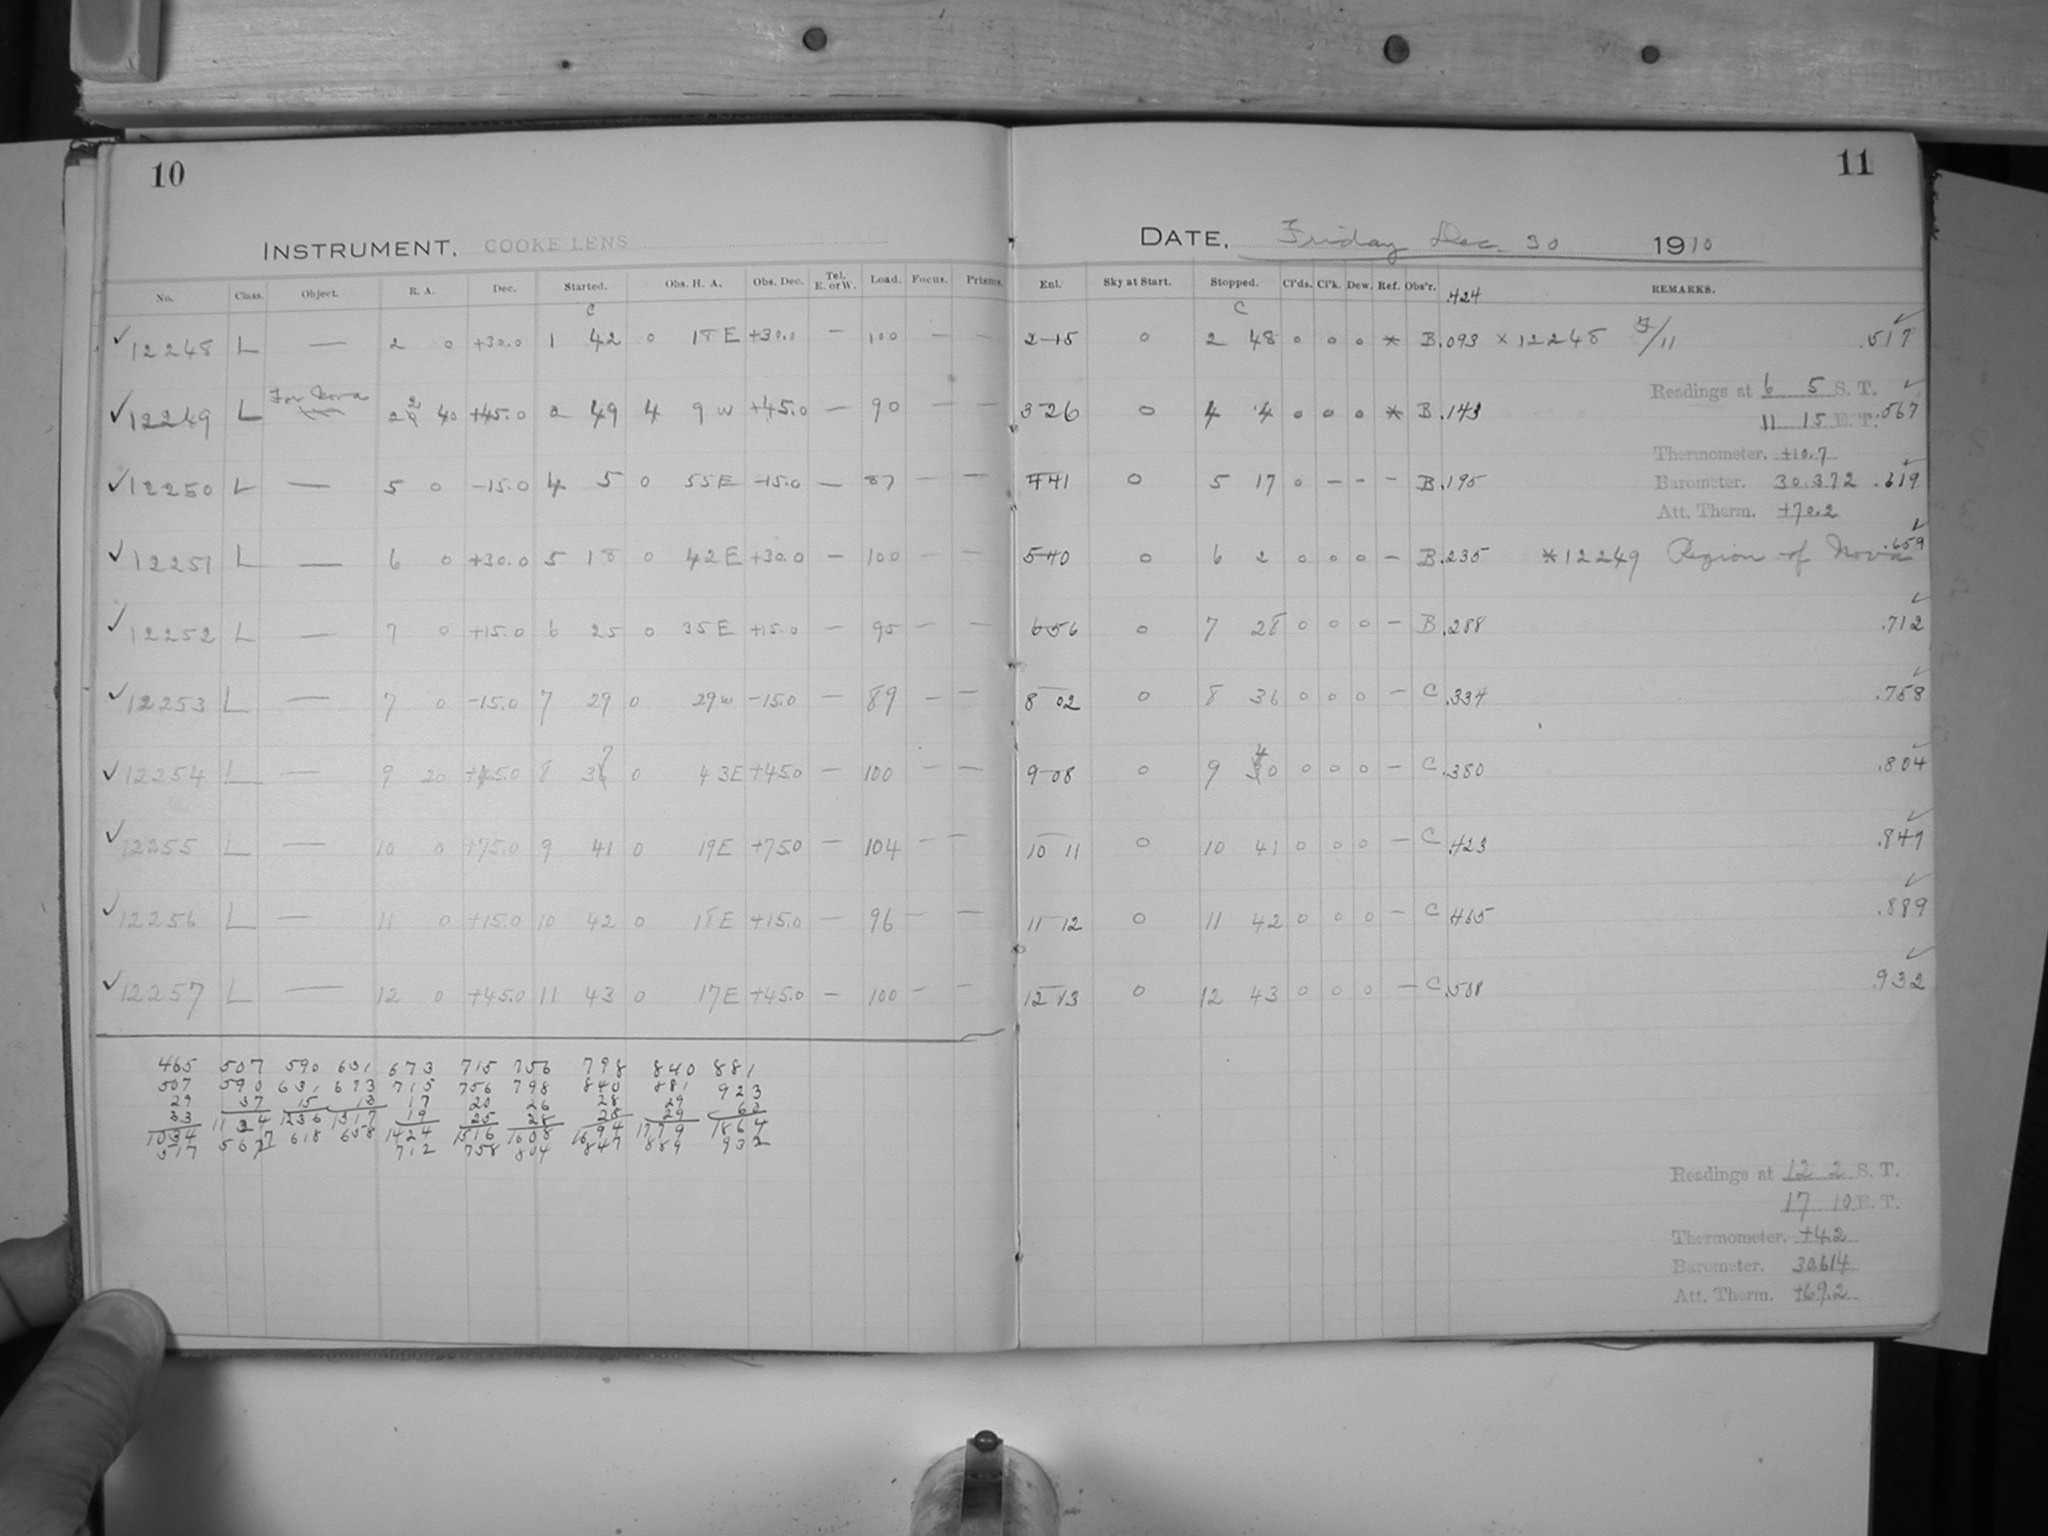 10
INSTRUMENT. COOKE LENS
No. Class. Object. R. A. Dec. Started. Obs. H. A. Obs. Dec. Tel. E. or W. Load. Focus. Prisms.
C
✓ 12248 L — 2 0 +30.0 1 42 0 18 E +30.0 — 100 — —
For Nova
✓ 12249 L 22 40 +45.0 2 49 4 9 W +45.0 — 90 — —
✓ 12250 L — 5 0 -15.0 4 5 0 55 E -15.0 — 87 — —
✓ 12251 L — 6 0 +30.0 5 18 0 42 E +30.0 — 100 — —
✓ 12252 L — 7 0 +15.0 6 25 0 35 E +15.0 — 95 — —
✓ 12253 L — 7 0 -15.0 7 29 0 29 W -15.0 — 89 — —
✓ 12254 L — 9 20 +45.0 8 37 0 43 E +45.0 — 100 — —
✓ 12255 L — 10 0 +75.0 9 41 0 19 E +75.0 — 104 — —
✓ 12256 L — 11 0 +15.0 10 42 0 18 E +15.0 — 96 — —
✓ 12257 L — 12 0 +45.0 11 43 0 17 E +45.0 — 100 — —
465 507 590 631 673 715 756 798 840 881
507 590 631 673 715 756 798 840 881 923
29 37 15 13 17 20 26 28 29 60
33 19 25 28 28 29
1034 1134 1236 1317 1424 1516 1608 1694 1779 1864
517 567 618 658 712 758 804 847 889 932
11
DATE, Friday Dec. 30 1910
Enl. Sky at Start. Stopped. Cl'ds. Cl'k. Dew. Ref. Obs'r. REMARKS.
C .424
2 15 0 2 48 0 0 0 * B .093 × 12248 /11 .517 ✓
Readings at 6 5 S. T. ✓
3 26 0 4 4 0 0 0 * B .143 11 15 E. T. .567
Thermometer. +10.7 ✓
4 41 0 5 17 0 — — — B .195 Barometer. 30.372 .619
Att. Therm. +70.2 ✓
5 40 0 6 2 0 0 0 — B .235 * 12249 Region of Nova .659
6 56 0 7 28 0 0 0 — B .288 .712 ✓
8 02 0 8 36 0 0 0 — C .334 .758 ✓
9 08 0 9 40 0 0 0 — C .380 .804 ✓
10 11 0 10 41 0 0 0 — C .423 .847 ✓
11 12 0 11 42 0 0 0 — C .465 .889 ✓
12 13 0 12 43 0 0 0 — C .508 .932 ✓
Readings at 12 2 S. T.
17 10 E. T.
Thermometer. +4.2
Barometer. 30.614
Att. Therm. +69.2